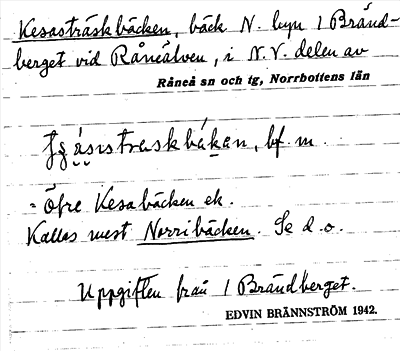 Kesasträskbäcken, bäck N. byn 1 Bränd-
berget vid Råneälven, i N.V. delen av
Råneå sn och tg, Norrbottens län
bf. m.
= Öfre Kesabäcken ek.
Kallas mest Norribäcken. Se d.o.
Uppgiften från 1 Brändberget.
EDVIN BRÄNNSTRÖM 1942.